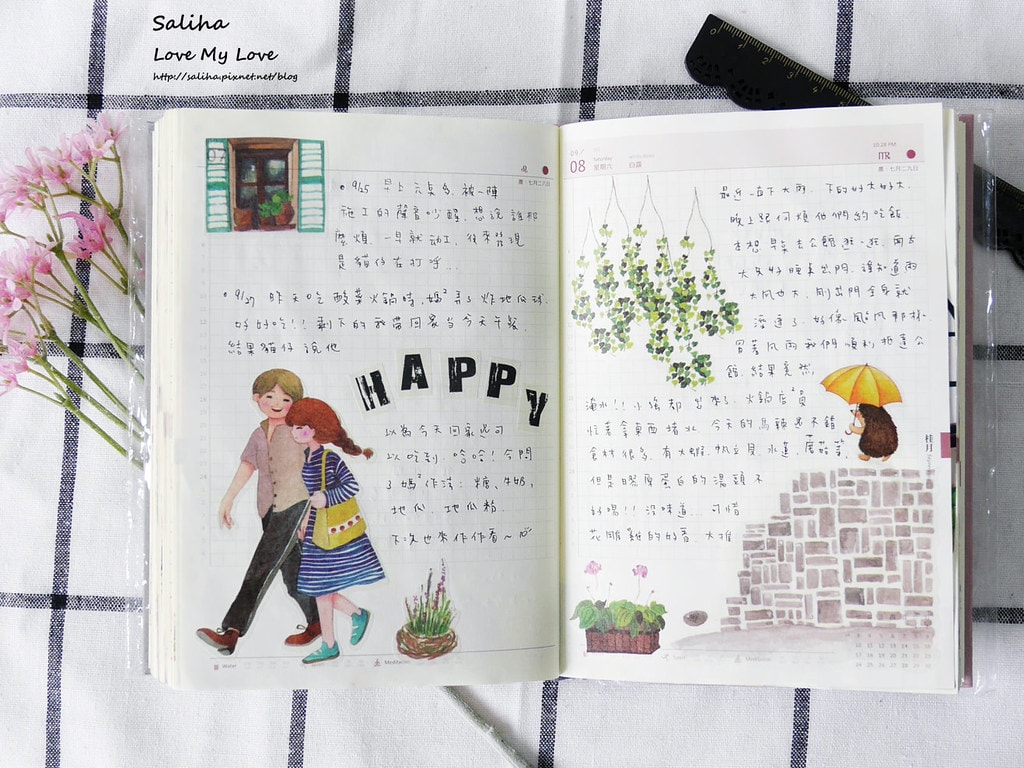 Saliha
Love My Love
http://saliha.pixnet.net/blog
9/25 早上六點多被一陣
施工的聲音吵醒,想說誰那
麼煩,一早就動工,後來發現
是貓仔在打呼...
9/27 昨天吃酸菜火鍋時,媽²弄了炸地瓜球,
好好吃!!剩下的我帶回家當今天午餐,
結果貓仔說他
HAPPY
以為今天回家還可
以吃到,哈哈!今問
了媽²作法:糖、牛奶,
地瓜、地瓜粉
下次也來作作看~
Water
Meditation
08
Saturday
星期六
白露
10:28 PM
農・七月二八日
最近一直下大雨,下的好大好大,
晚上跟阿煩他們約吃飯,
本想早點去公館逛一逛,兩台
大包好睡末出門,誰知道雨
大風也大,剛出門全身就
溼透了,好像颱風那樣
冒著風雨我們順利抵達公
館,結果竟然,
淹水!!小強都出來了,火鍋店員
忙著拿東西堵水,今天的烏頭還不錯
食材很多,有大蝦、帆立貝、水蓮、蘑菇等,
但是膠原蛋白的湯頭不
好喝!!沒味道...可惜
花雕雞的好香,大推
桂月
Meditation